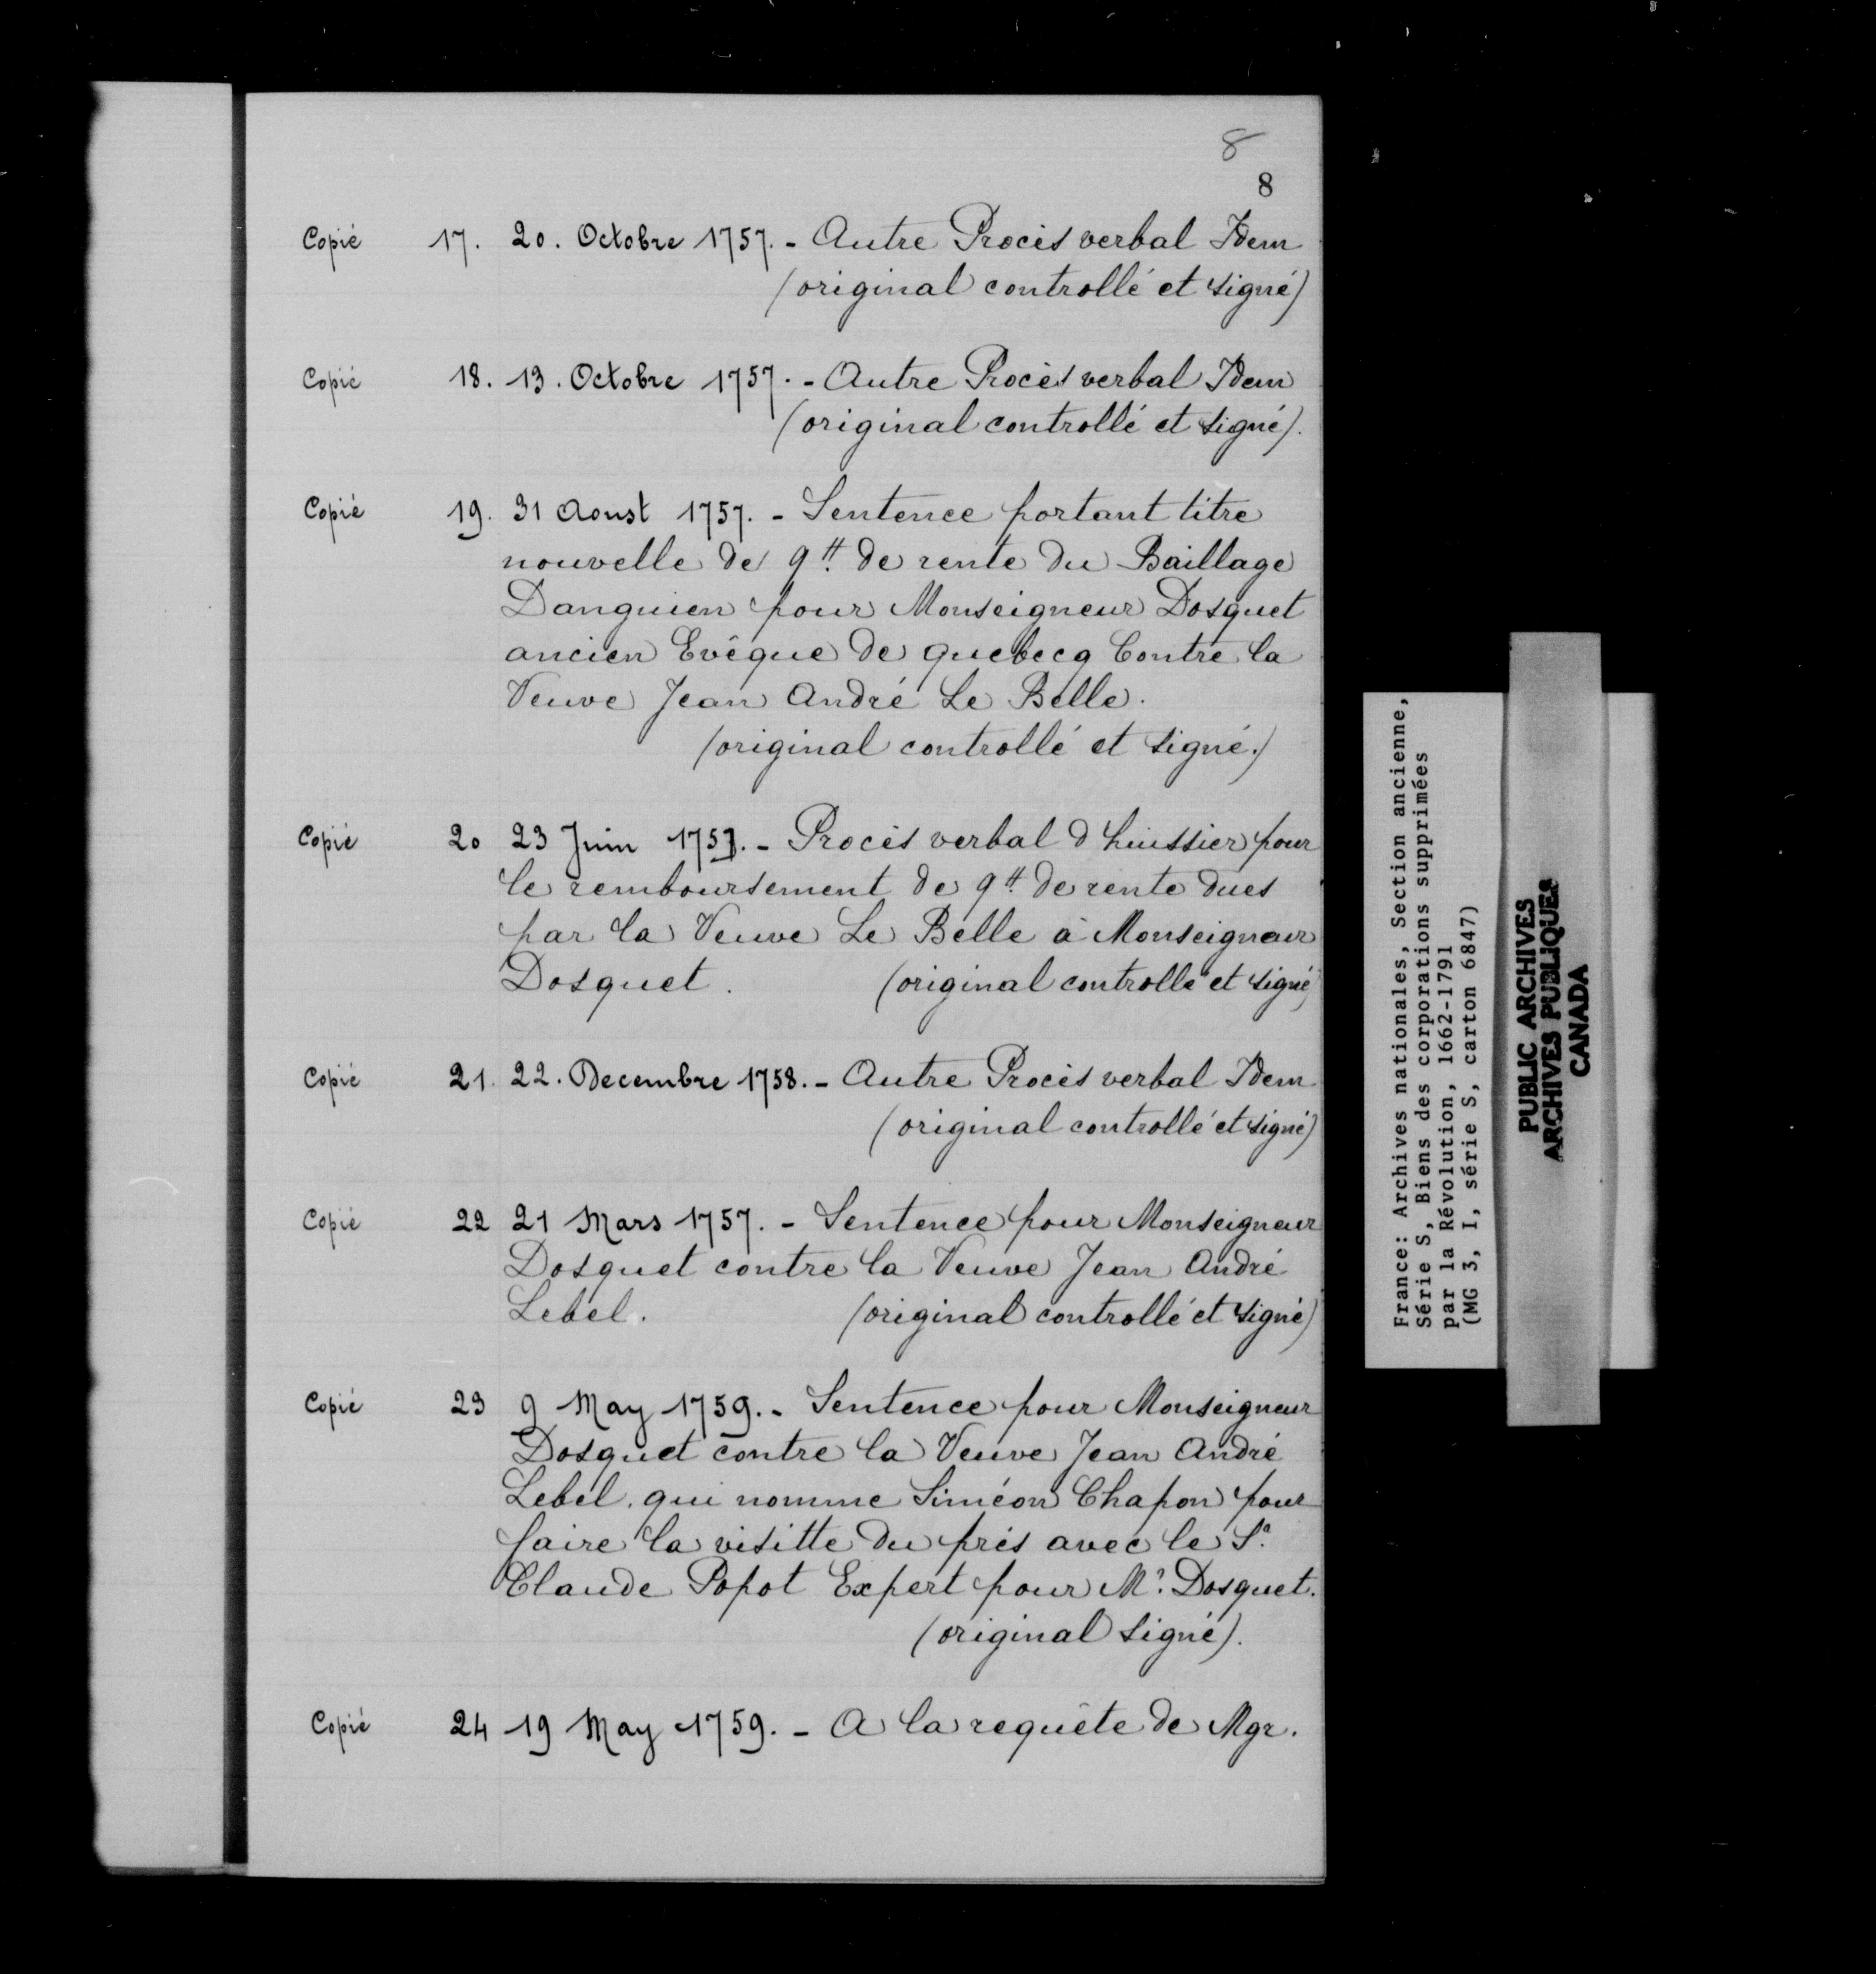 8
8
Copié 17. 20. Octobre 1757. - Autre Procès verbal Idem
(original controllé et signé)
Copié 18. 13. Octobre 1757. - Autre Procès verbal Idem
(original controllé et signé).
Copié 19. 31 Aoust 1757. - Sentence portant titre
nouvelle de 9 ₶. de rente du Baillage
Danguien pour Monseigneur Dosquet
ancien Evêque de quebecq Contre la
Veuve Jean André Le Belle.
(original controllé et signé.)
Copié 20 23 Juin 1757. - Procès verbal d'huissier pour
le remboursement de 9 ₶. de rente dues
par la Veuve Le Belle à Monseigneur
Dosquet. (original controllé et signé)
Copié 21. 22. Decembre 1758. - Autre Procès verbal Idem
(original controllé et signé)
Copié 22 21 Mars 1757. - Sentence pour Monseigneur
Dosquet contre la Veuve Jean André
Lebel. (original controllé et signé)
Copié 23 9 May 1759. - Sentence pour Monseigneur
Dosquet contre la Veuve Jean André
Lebel, qui nomme Siméon Chapon pour
faire la visitte du prés avec le Sr.
Claude Popot Expert pour Mr. Dosquet.
(original signé).
Copié 24 19 May 1759. - A la requête de Mgr.
France: Archives nationales, Section ancienne,
Série S, Biens des corporations supprimées
par la Révolution, 1662-1791
(MG 3, I, série S, carton 6847)
PUBLIC ARCHIVES
ARCHIVES PUBLIQUES
CANADA